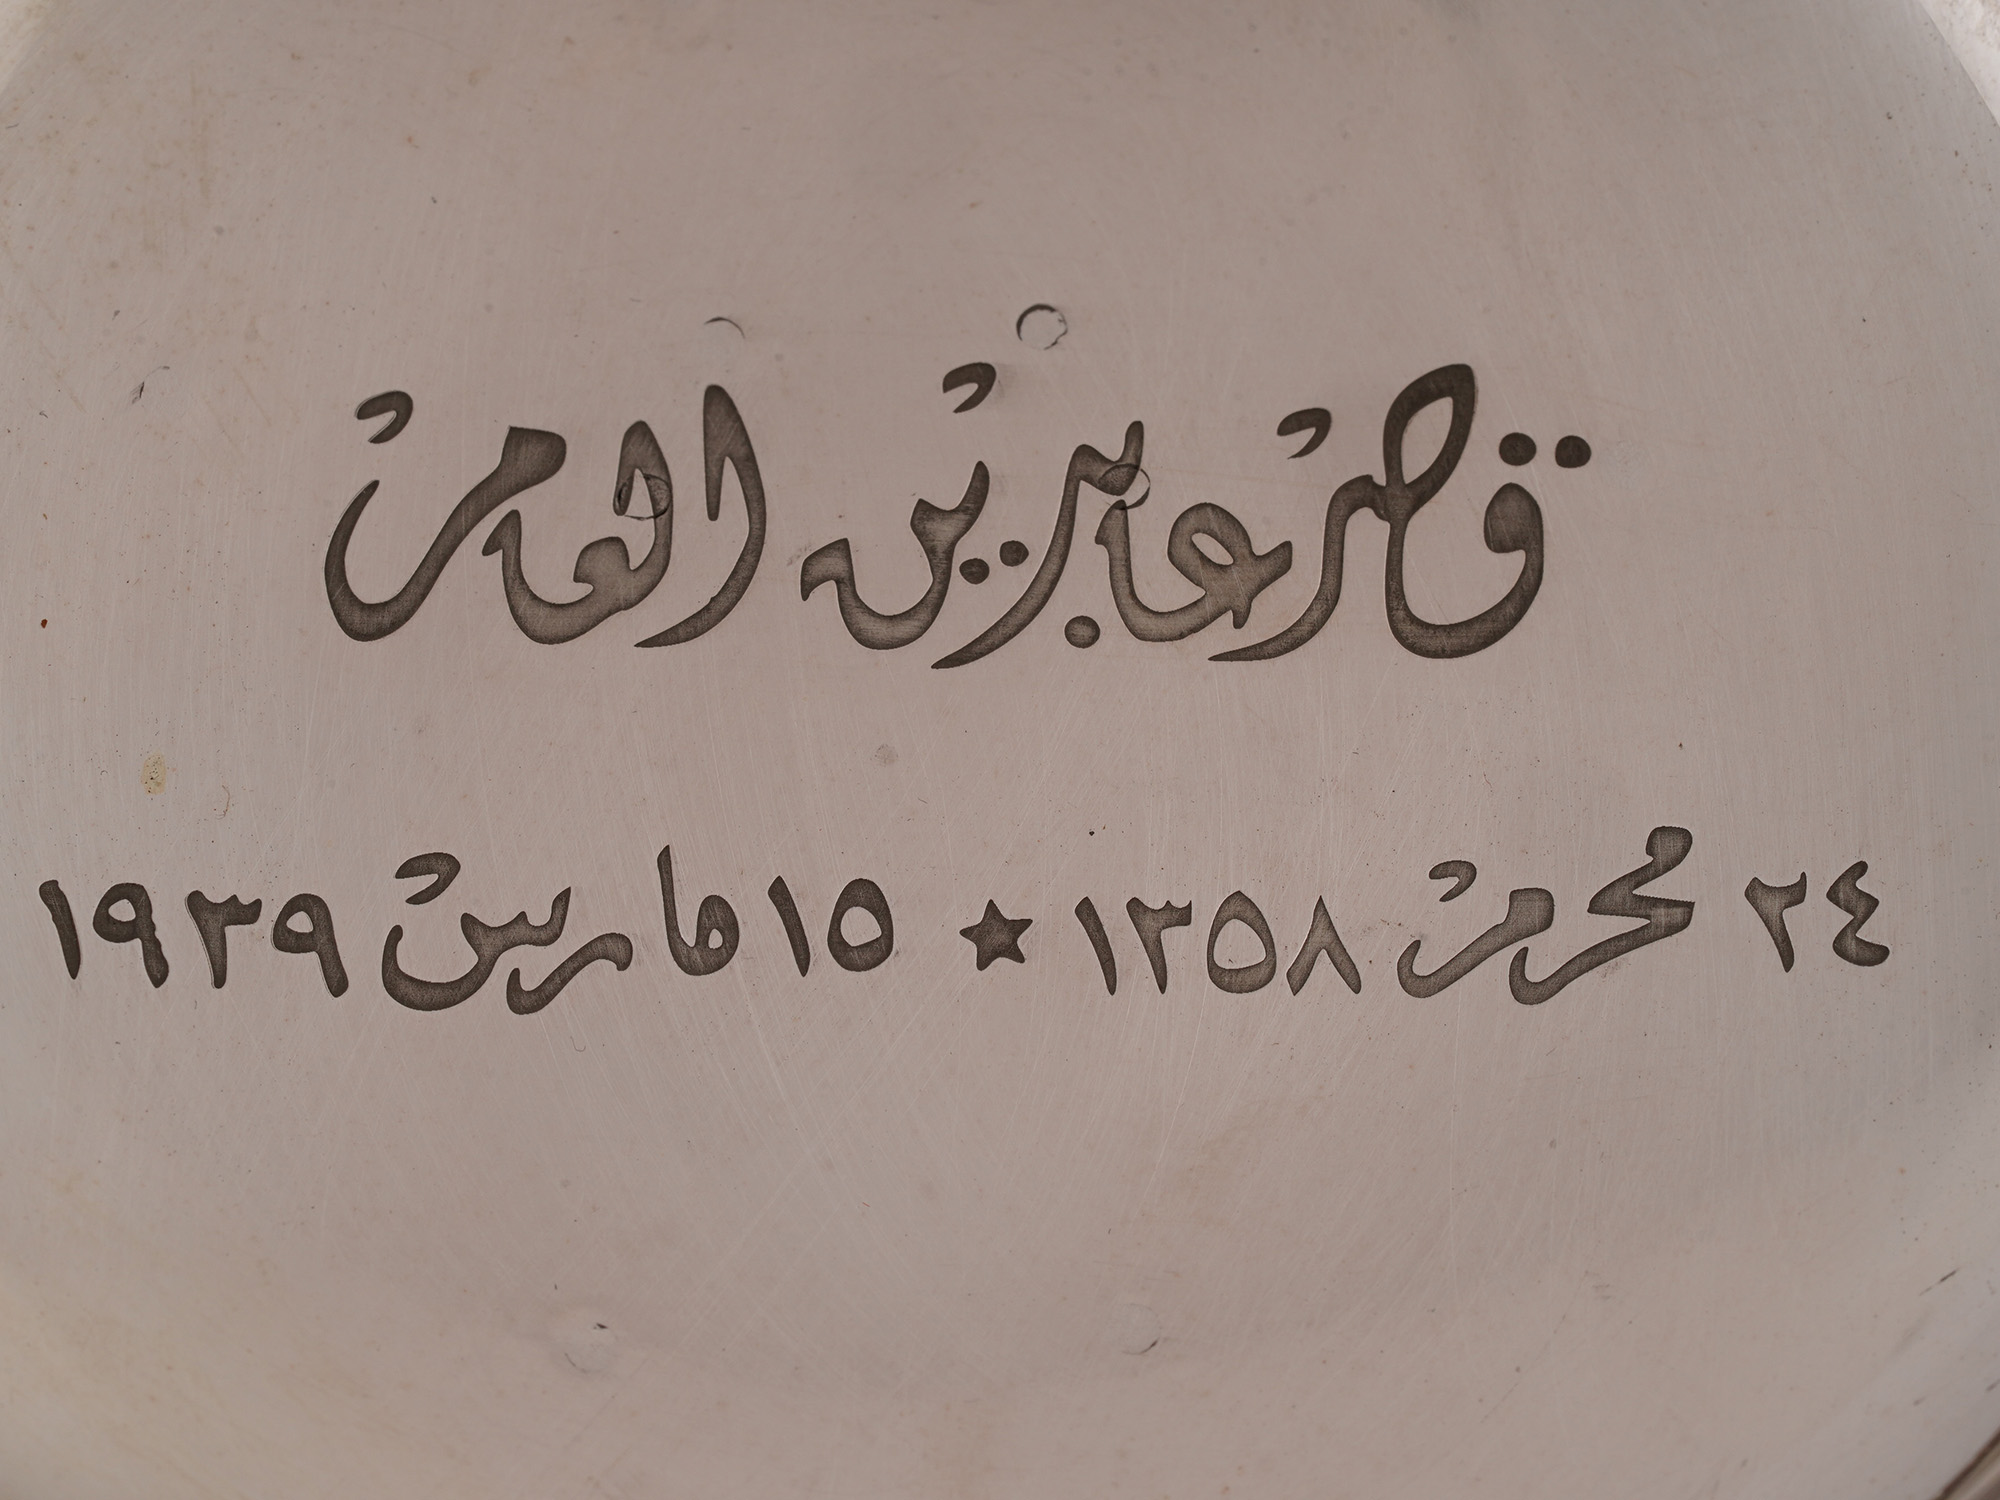 قصر عابدين العامر
٢٤ محرم ١٣٥٨ ★ ١٥ مارس ١٩٣٩